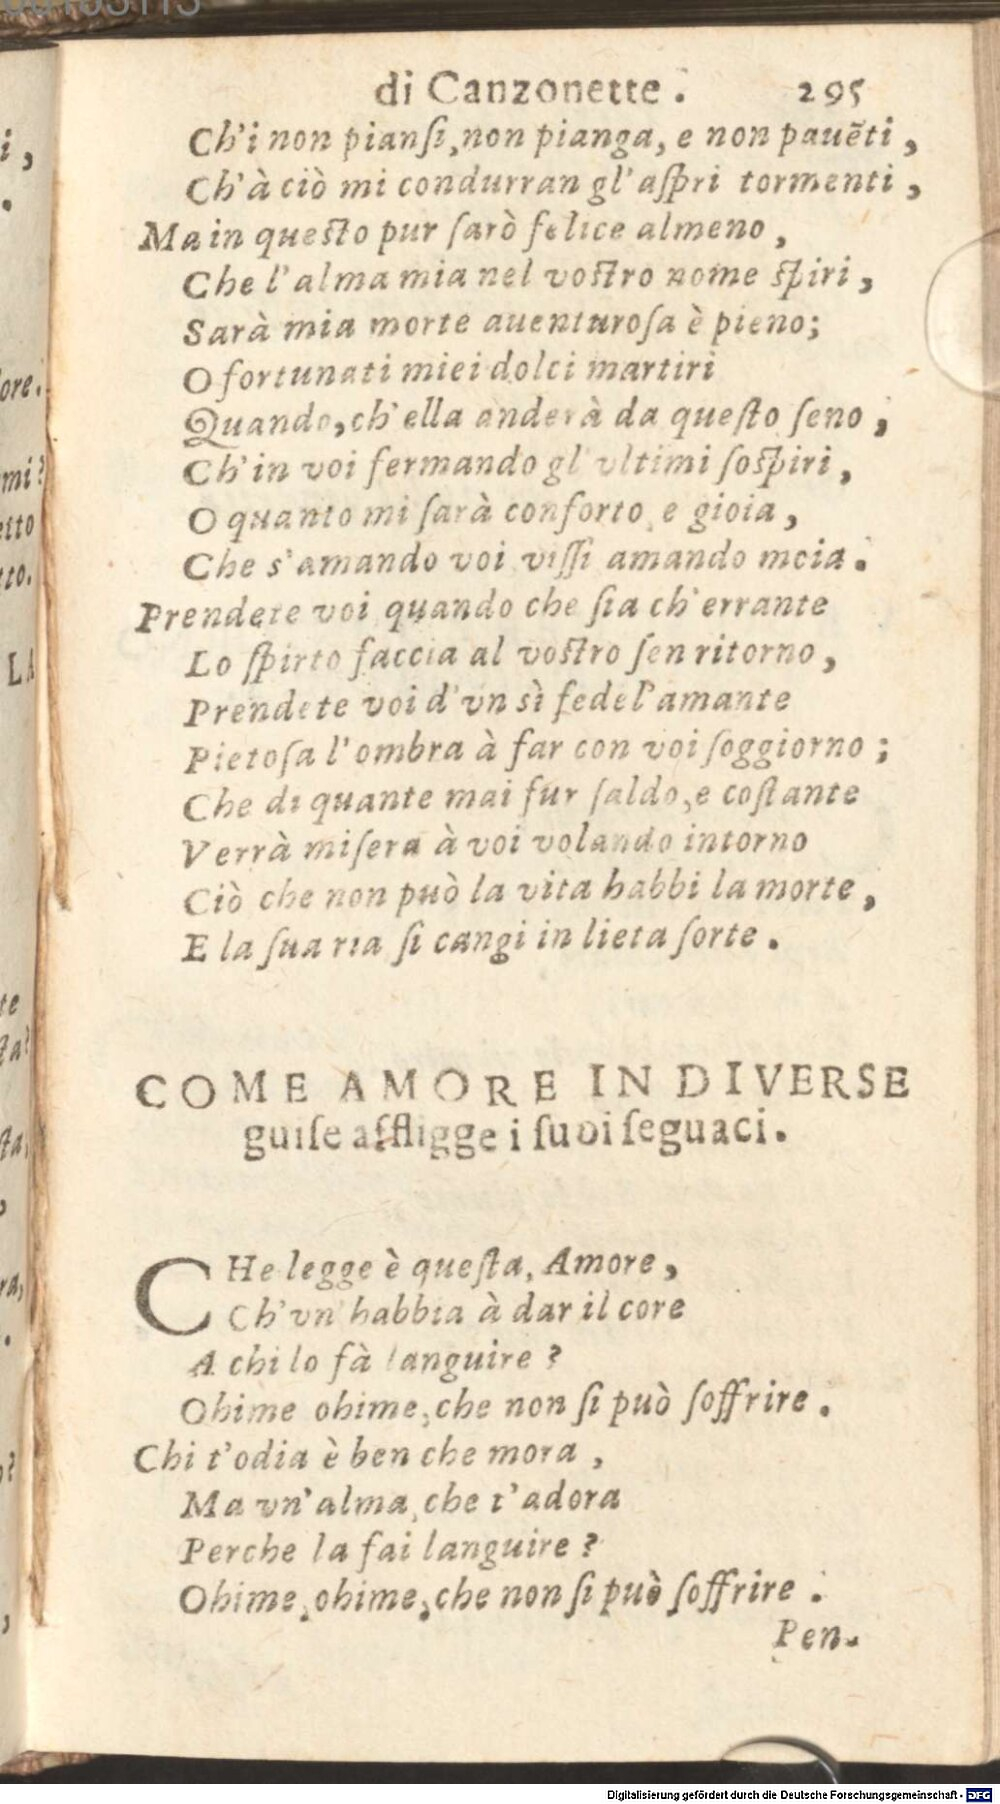 di Canzonette. 295
Ch'i non pianſi, non pianga, e non pauẽti,
Ch'à ciò mi condurran gl'aſpri tormenti,
Ma in queſto pur ſarò felice almeno,
Che l'alma mia nel voſtro nome ſpiri,
Sarà mia morte auenturoſa è pieno;
O fortunati miei dolci martiri
Quando, ch'ella anderà da queſto ſeno,
Ch'in voi fermando gl'vltimi ſoſpiri,
O quanto mi ſarà conforto, e gioia,
Che s'amando voi viſſi amando moia.
Prendete voi quando che ſia ch'errante
Lo ſpirto faccia al voſtro ſen ritorno,
Prendete voi d'vn sì fedel'amante
Pietoſa l'ombra à far con voi ſoggiorno;
Che di quante mai fur ſaldo, e coſtante
Verrà miſera à voi volando intorno
Ciò che non può la vita habbi la morte,
E la ſua ria ſi cangi in lieta ſorte.
COME AMORE IN DIVERSE
guiſe affligge i ſuoi ſeguaci.
CHe legge è queſta, Amore,
Ch'vn habbia à dar il core
A chi lo fà languire?
Ohime ohime, che non ſi può ſoffrire.
Chi t'odia è ben che mora,
Ma vn'alma, che t'adora
Perche la fai languire?
Ohime, ohime, che non ſi può ſoffrire.
Pen-
i,
.
ore.
mi?
etto
tto.
LA
te
ſta?
ſta,
ra,
.
o?
,
Digitalisierung gefördert durch die Deutsche Forschungsgemeinschaft - DFG